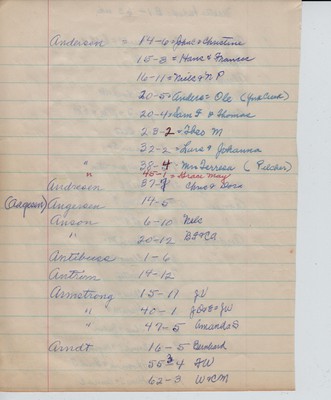 Anderson " 14-6 = John & Christine
15-8 = Hans & Frances
16-11 = Niels & N P
20-5 = Anders = Ole (
20-4 = Sam F & Thomas
23-2 = Theo M
32-2 = Lars & Johanna
" 38-4 = Mrs Terresa ( Pitcher)
" 45-1 = Grace May
Andresen 37-9 Chris & Dora
(Aagesen) Angersen 14-5
Anson 6-10 Nels
" 20-12
Antibuss 1-6
Antrim 14-12
Armstrong 15-17 J V
" 40-1 J D & E & J W
" 47-5 Amanda D
Arndt 16-5 Bernhard
55-4 F W
62-3 W & C M